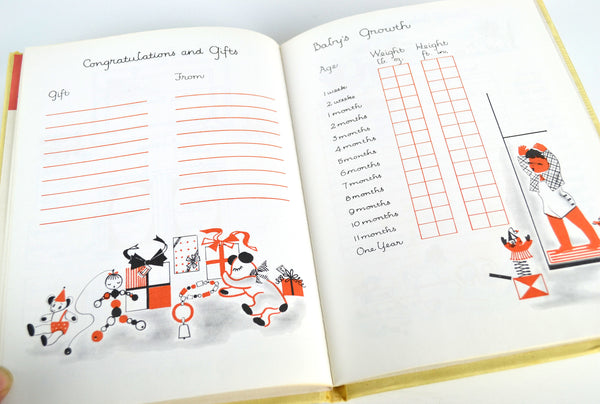 Congratulations and Gifts
Gift From
Baby's Growth
Age Weight Height
lb. oz. ft. in.
1 week
2 weeks
1 month
2 months
3 months
4 months
5 months
6 months
7 months
8 months
9 months
10 months
11 months
One Year